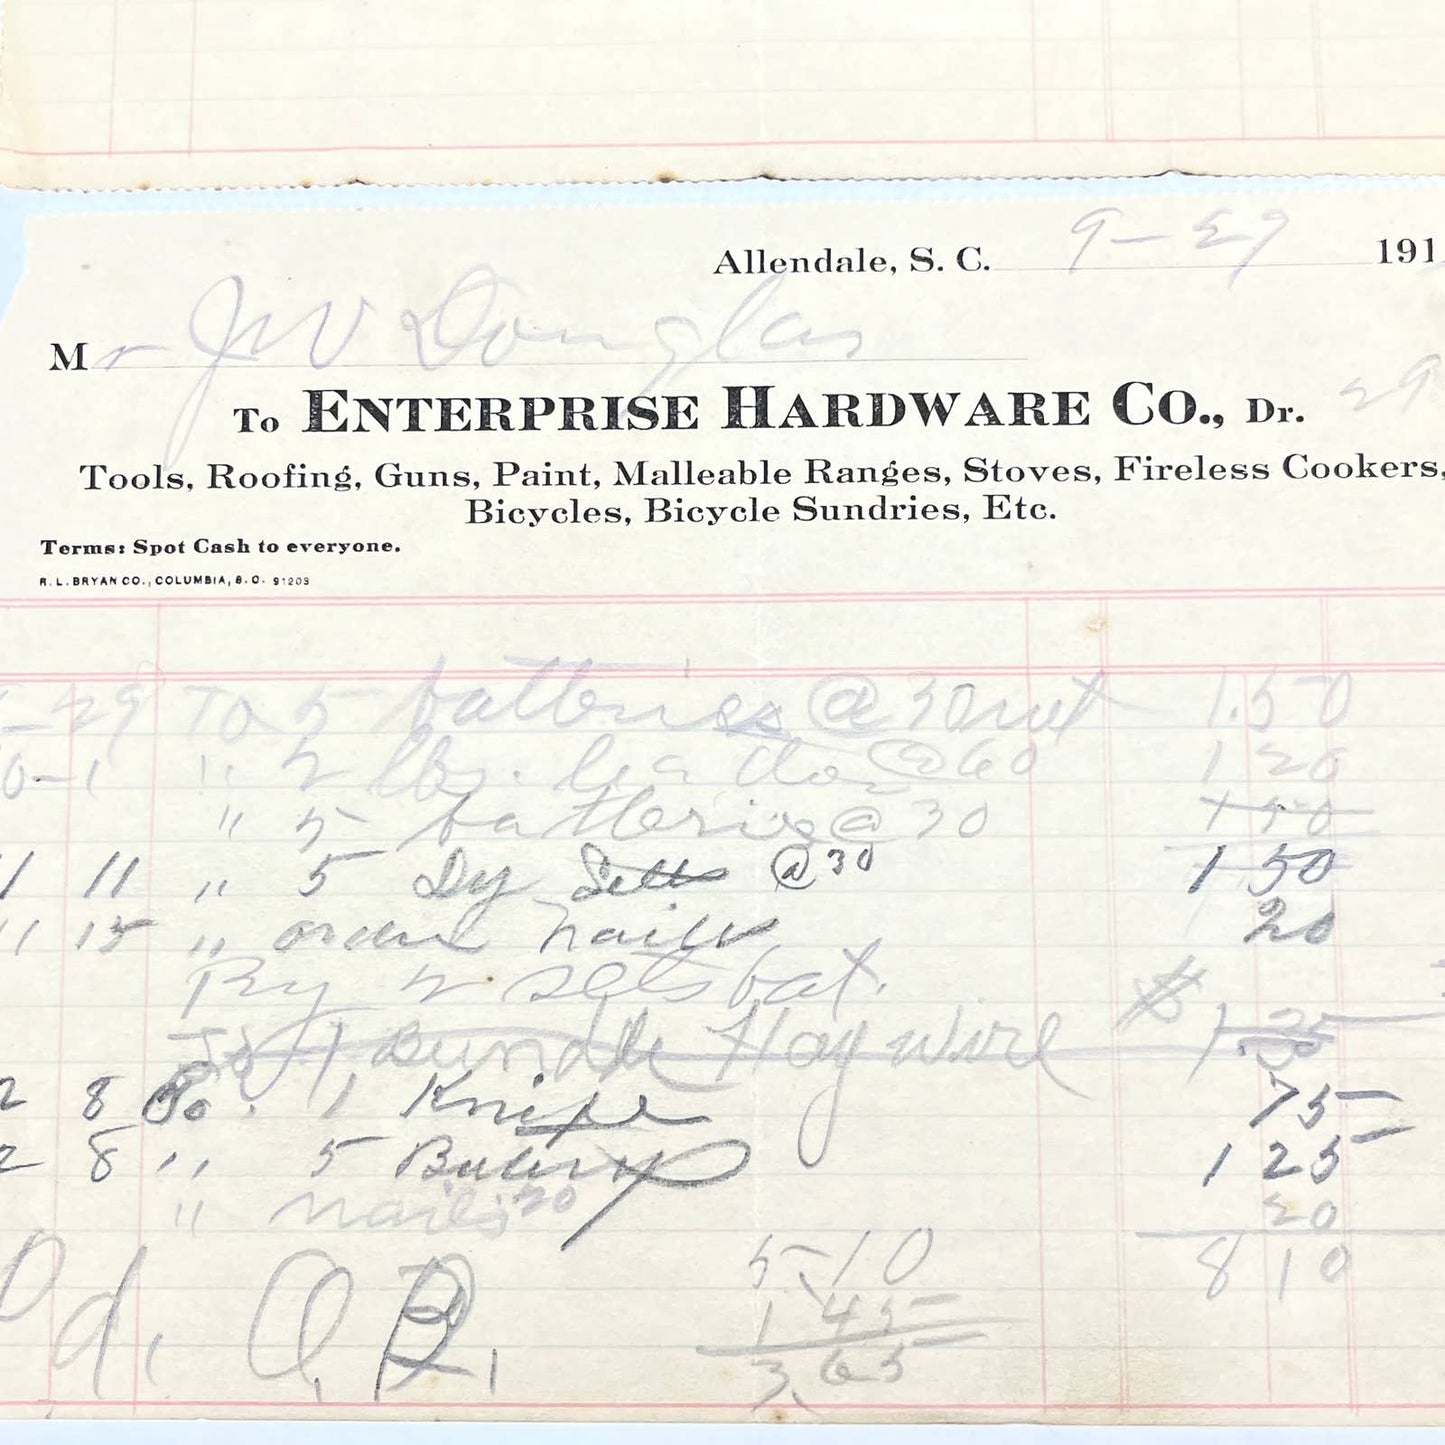 Allendale, S. C. 9-29 191
Mr J W Douglas
29
To ENTERPRISE HARDWARE CO., Dr.
Tools, Roofing, Guns, Paint, Malleable Ranges, Stoves, Fireless Cookers,
Bicycles, Bicycle Sundries, Etc.
Terms: Spot Cash to everyone.
R. L. BRYAN CO., COLUMBIA, S. C. 91203
-29 To 5 batteries @ 30 net 1.50
0-1 " 2 lbs. @ 60 1 20
" 5 batteries @ 30 1 50
1 11 " 5 Dy @ 30 1 50
11 15 " nails 20
By 2 sets bat. $ 1.25
To 1 Bundle Hay wire
2 8 To 1 Knife 75
2 8 " 5 Battery 1 25
" nails 20 20
5.10 8 10
1 45
3.65
Pd.